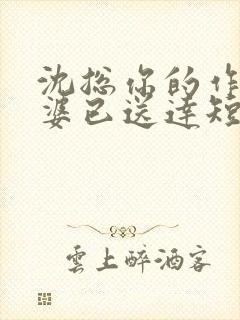 沈总你的作
婆已送达短
雲上醉酒客